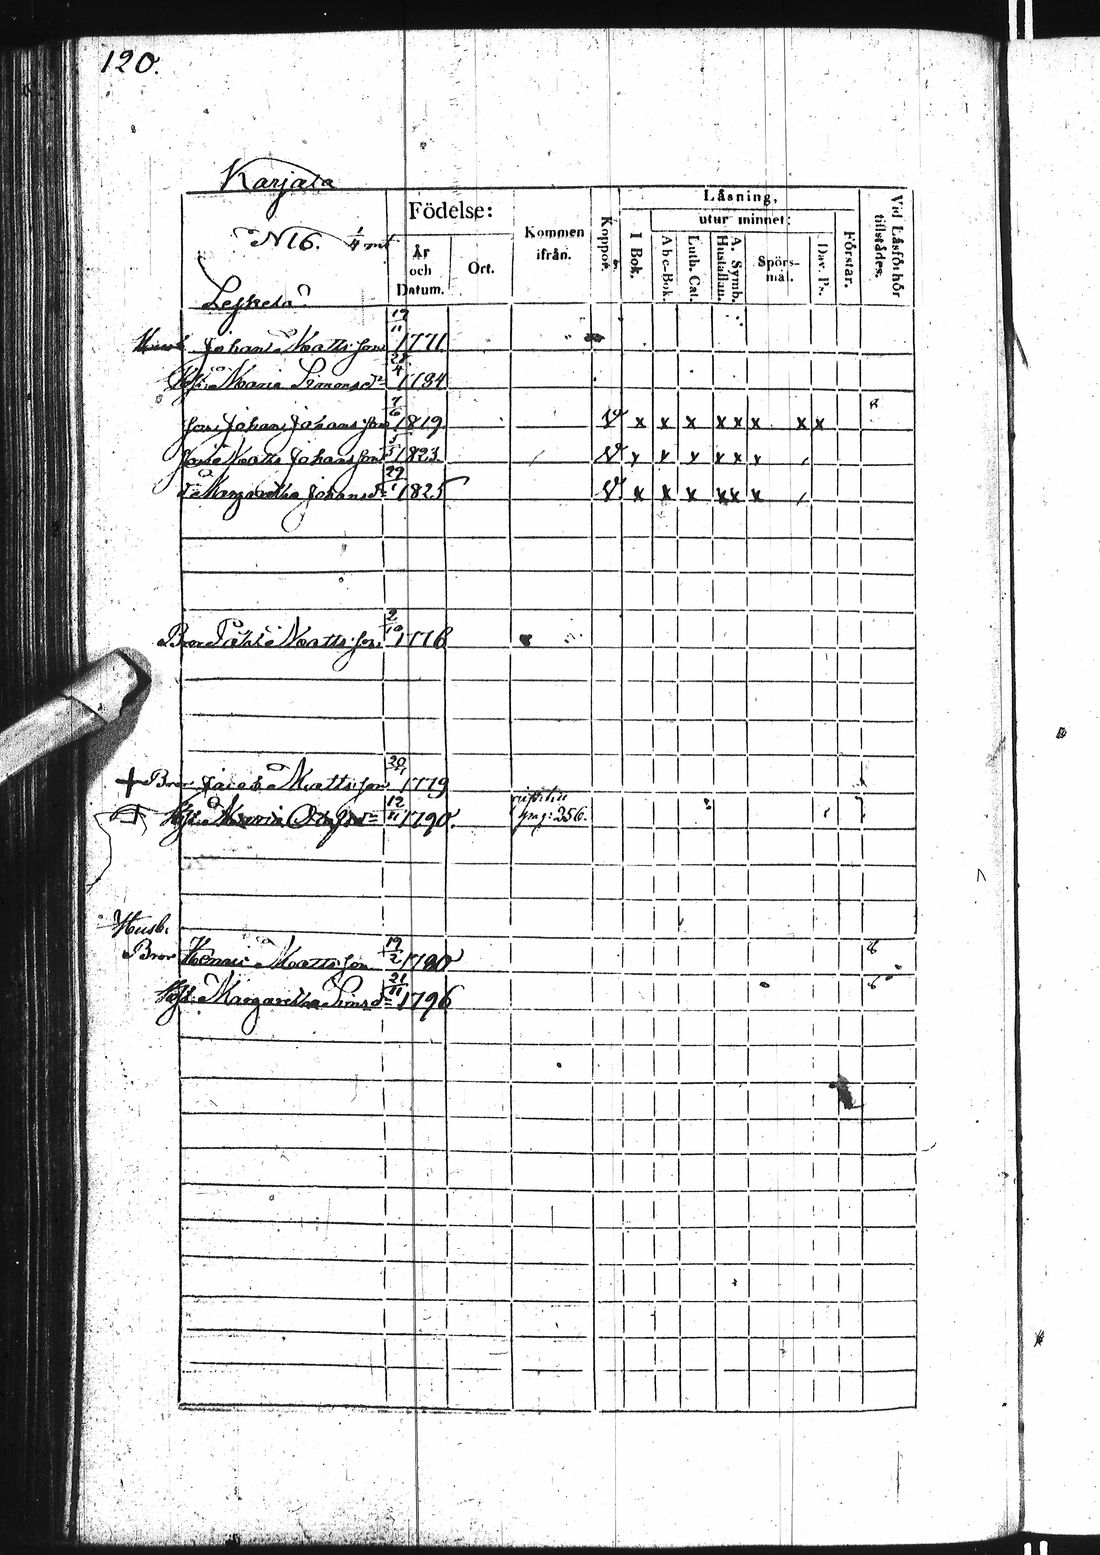 120.
Karjala
N 16. 1/4 mt
Födelse:
År och Datum.
Ort.
Kommen ifrån.
Koppor.
Läsning,
I Bok.
utur minnet:
A b c-Bok.
Luth. Cat.
A. Symb. Hustaflan.
Spörs-mål.
Dav. Ps.
Förstår.
Vid Läsförhör tillstädes.
Johan Mattsson 1771
Hust. Maria Simonsdr 28/4 1784
Son Johan Johansson 7/6 1819 V x x x x x x x x 8
Son Matts Johansson 1823 V x x x x x x
Dr Margaretha Johansdr 1825 V x x x x x x
Bror Mattsson 2/10 1776
+ Bror Jacob Mattsson 1779
Hust. Maria 12/11 1790. pag: 356.
Husb.
Bror Henric Mattsson 19/2 1780 8
Hust. Margaretha Simsdr 21/11 1796